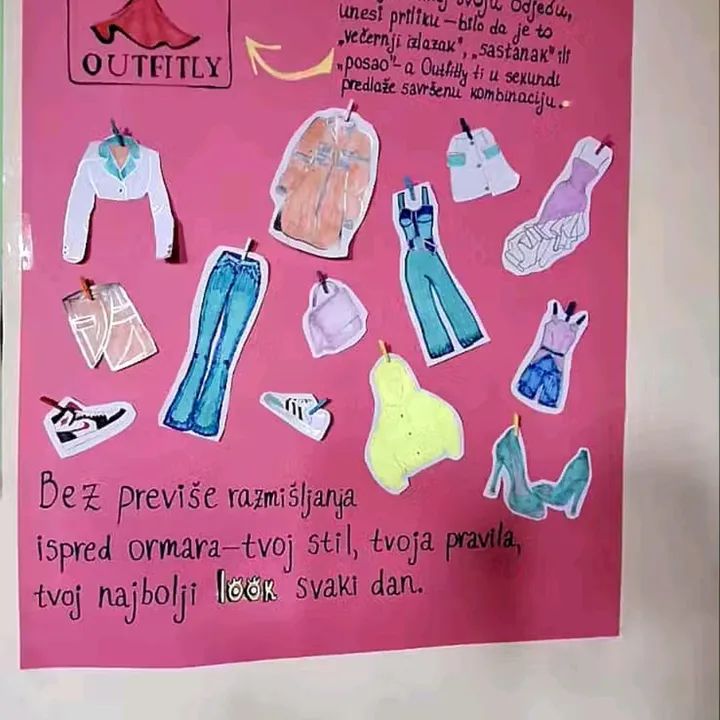 OUTFITLY
svoju odjeću,
unesi priliku – bilo da je to
„večernji izlazak“, „sastanak“ ili
„posao“ – a Outfitly ti u sekundi
predlaže savršenu kombinaciju.
Bez previše razmišljanja
ispred ormara – tvoj stil, tvoja pravila,
tvoj najbolji look svaki dan.